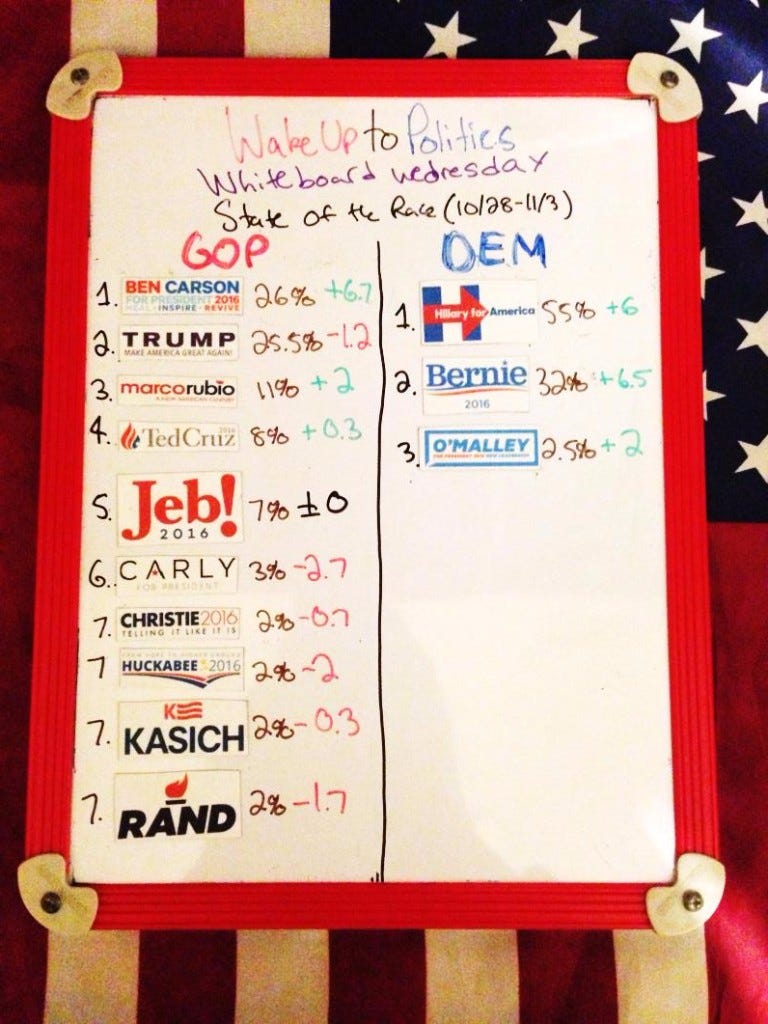 Wake Up to Politics
Whiteboard Wednesday
State of the Race (10/28-11/3)
GOP
1. BEN CARSON 26% +6.7
FOR PRESIDENT 2016
HEAL • INSPIRE • REVIVE
2. TRUMP 25.5% -1.2
MAKE AMERICA GREAT AGAIN!
3. marcorubio 11% +2
A NEW AMERICAN CENTURY
4. TedCruz 8% +0.3
2016
5. Jeb! 7% ±0
2016
6. CARLY 3% -2.7
FOR PRESIDENT
7. CHRISTIE 2016 2% -0.7
TELLING IT LIKE IT IS
7 HUCKABEE 2016 2% -2
FROM HOPE TO HIGHER GROUND
7. K
KASICH 2% -0.3
7. RAND 2% -1.7
DEM
1. H Hillary for America 55% +6
2. Bernie 32% +6.5
2016
3. O'MALLEY 2.5% +2